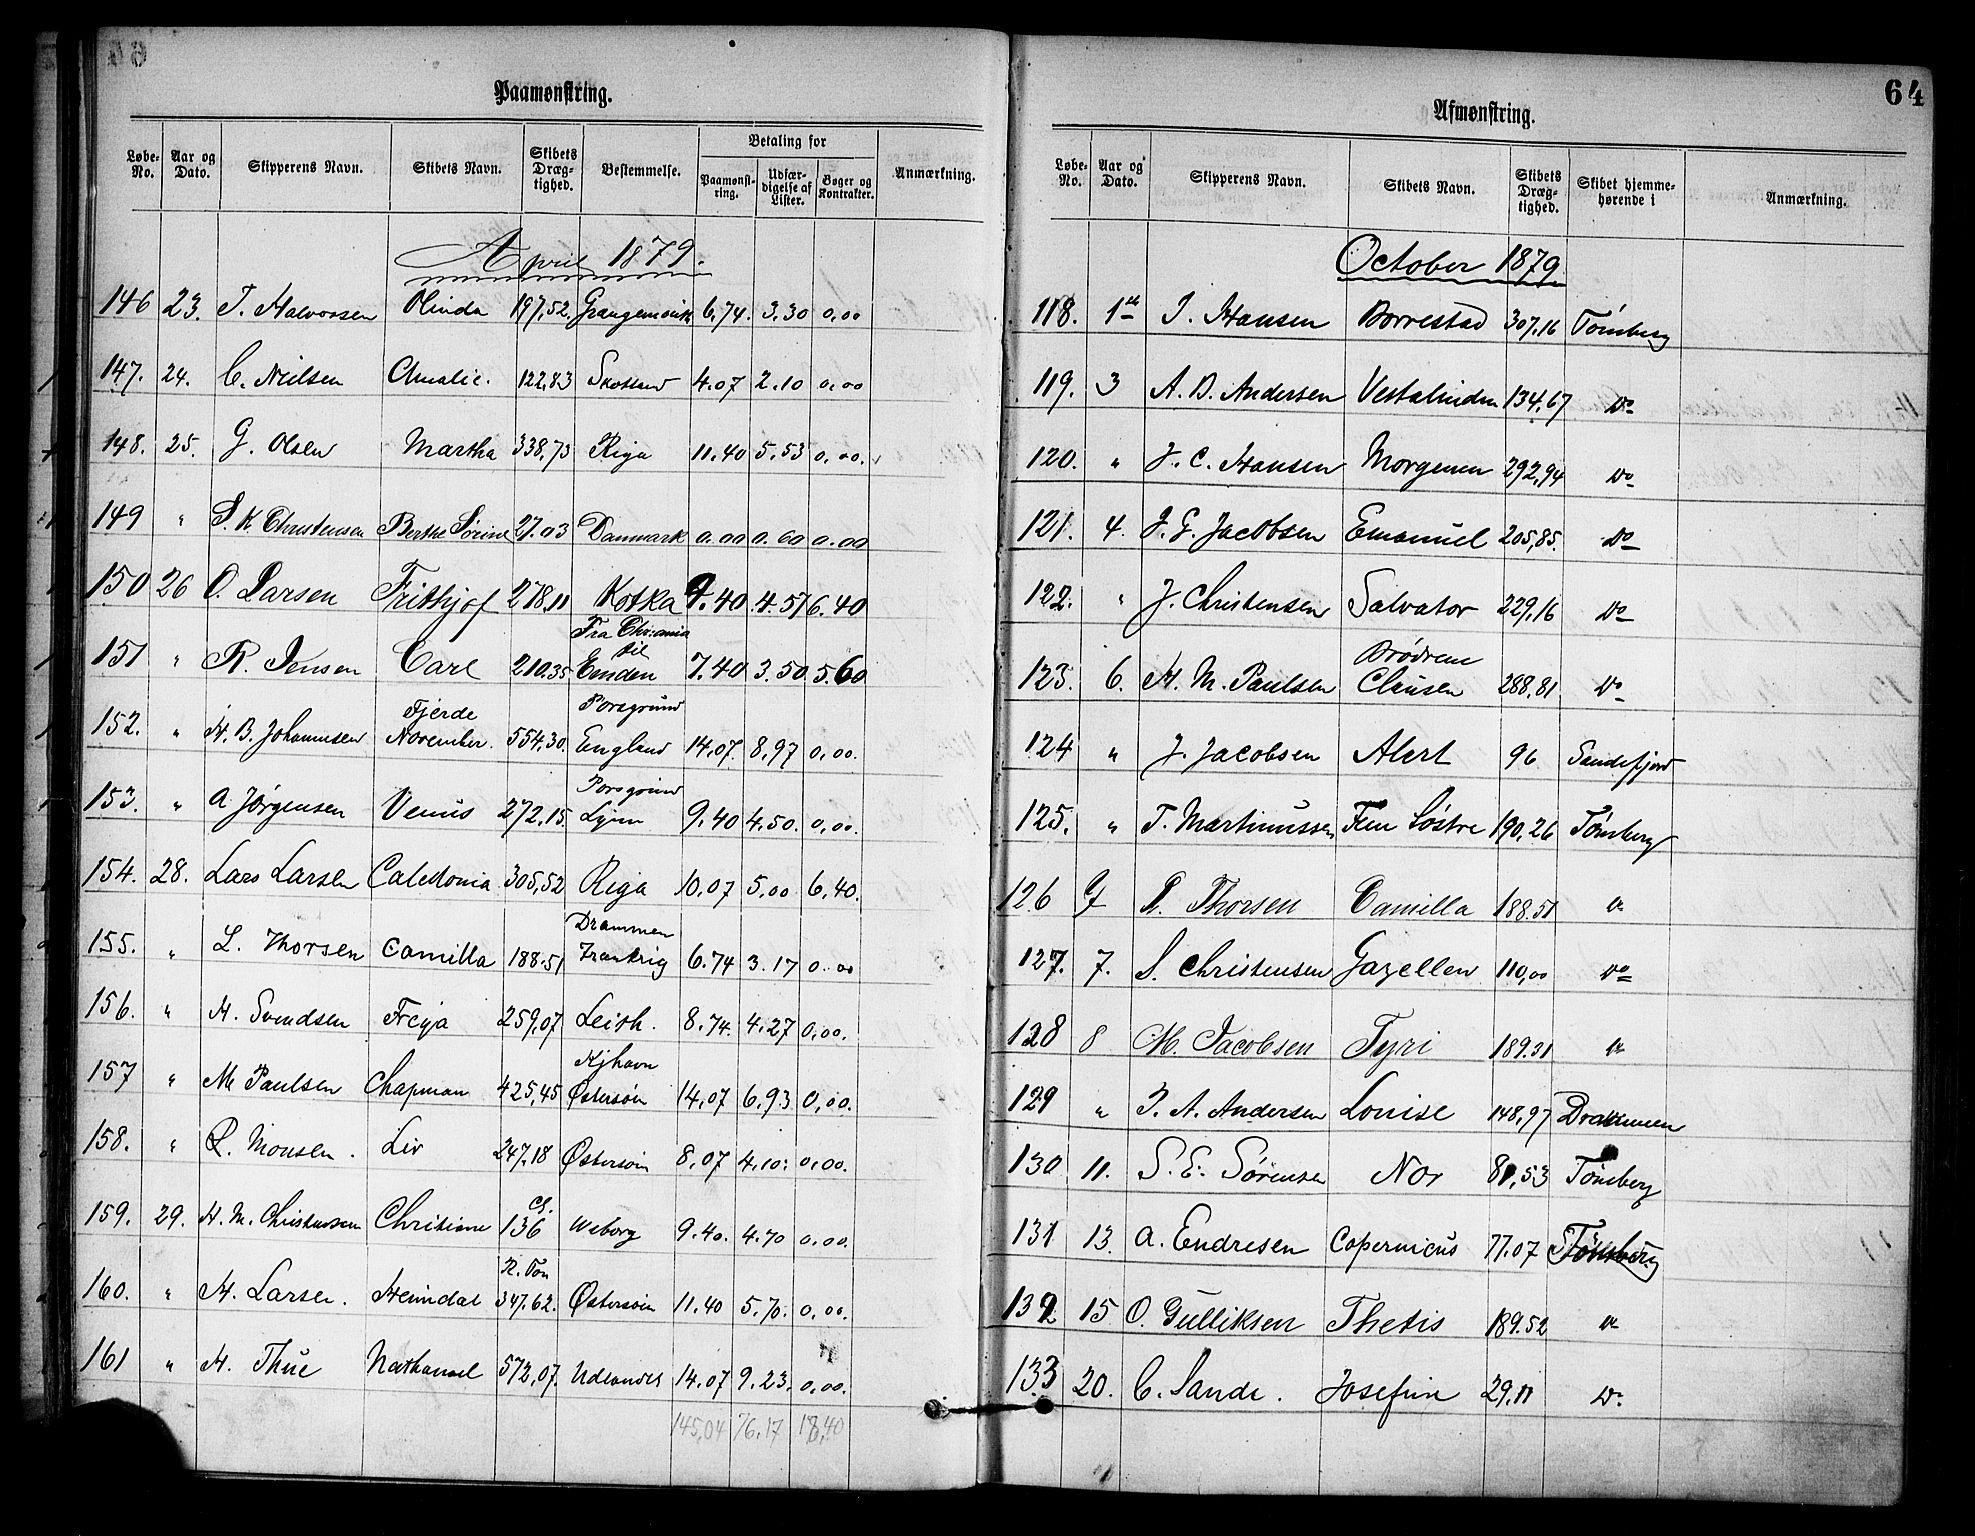 Paamønstring.
Løbe-No. Aar og Dato. Skipperens Navn. Skibets Navn. Skibets Dræg-tighed. Bestemmelse. Betaling for Paamønst-ring. Udfær-digelse af Lister. Bøger og Kontrakter. Anmærkning.
April 1879.
146 23. T. Halvorsen Olinda 197,52. Grangemouth 6.74. 3.30 0,00
147. 24. C. Nielsen Amalie. 122,83 Skotland 4.07 2.10 0,00
148. 25. G. Olsen Martha 338,73 Riga 11.40 5.53 0,00.
149 " S. K Christensen Berthe Sørine 27.03 Danmark 0.00 0.60 0.00
150 26 O. Larsen Frithjof 278,11 Kotka 9.40 4.57 6.40
Fra Chr:ania til
151 " R. Jensen Carl 210.35 Emden 7.40 3.50 5.60
Fjerde Porsgrund
152. " H. B. Johannesen November. 554.30. England 14,07. 8,97 0,00.
Porsgrund
153. " A Jørgensen Venus 272.15. Lynn 9.40 4.50. 0,00.
154. 28. Lars Larsen Caledonia 305,52 Riga 10.07 5,00 6,40.
Drammen
155. " L. Thorsen Camilla 188.51 Frankrig 6.74 3.17 0.00
156. " H. Svendsen Freya 259,07 Leith. 8.74. 4.27 0,00.
Kjhavn
157 " M Paulsen Chapman 425,45 Østersøin 14,07 6.93 0,00.
158. " L. Monsen. Liv 247.18 Østersøin 8,07 4,10. 0,00.
Cl.
159. 29. H. M. Christensen Christiane 136 Weborg 9.40. 4.70 0,00.
R. Ton
160. " H. Larsen. Heimdal 347.62. Østersøin 11.40 5.70. 0,00.
161 " H. Thue Nathanael 572,07. Udlandet 14.07 9.23. 0,00.
145,04 76.17 18,40
64
Afmønstring.
Løbe-No. Aar og Dato. Skipperens Navn. Skibets Navn. Skibets Dræg-tighed. Skibet hjemme-hørende i Anmærkning.
October 1879
118. 1ste J. Hansen Borrestad 307.16 Tønsberg
119. 3 A. B. Andersen Vestalinden 134,67 Do
120. " J. C. Hansen Morgenen 292,94 Do
121. 4. J. G. Jacobsen Emanuel 205,85. Do
122. " J. Christensen Salvator 229,16 Do
Brødrene
123. 6. H. M. Paulsen Clausen 288.81 Do
124 " J. Jacobsen Alert 96 Sandefjord
125. " T. Martinussen Fem Søstre 190,26 Tønsberg
126 7 L. Thorsen Camilla 188.51 "
127. 7. S. Christensen Gazellen 110,00 Do
128 8 M. Jacobsen Tyri 189.31 "
129 " T. A. Andersen Louise 148,97 Drammen
130 11. S. E. Sørensen Nor 81,53 Tønsberg
131 13. A. Endresen Copernicus 77.07 Tönsberg
132 15 O. Gulliksen Thetis 189.52 "
133 20. C. Sande. Josefine 29.11 Do